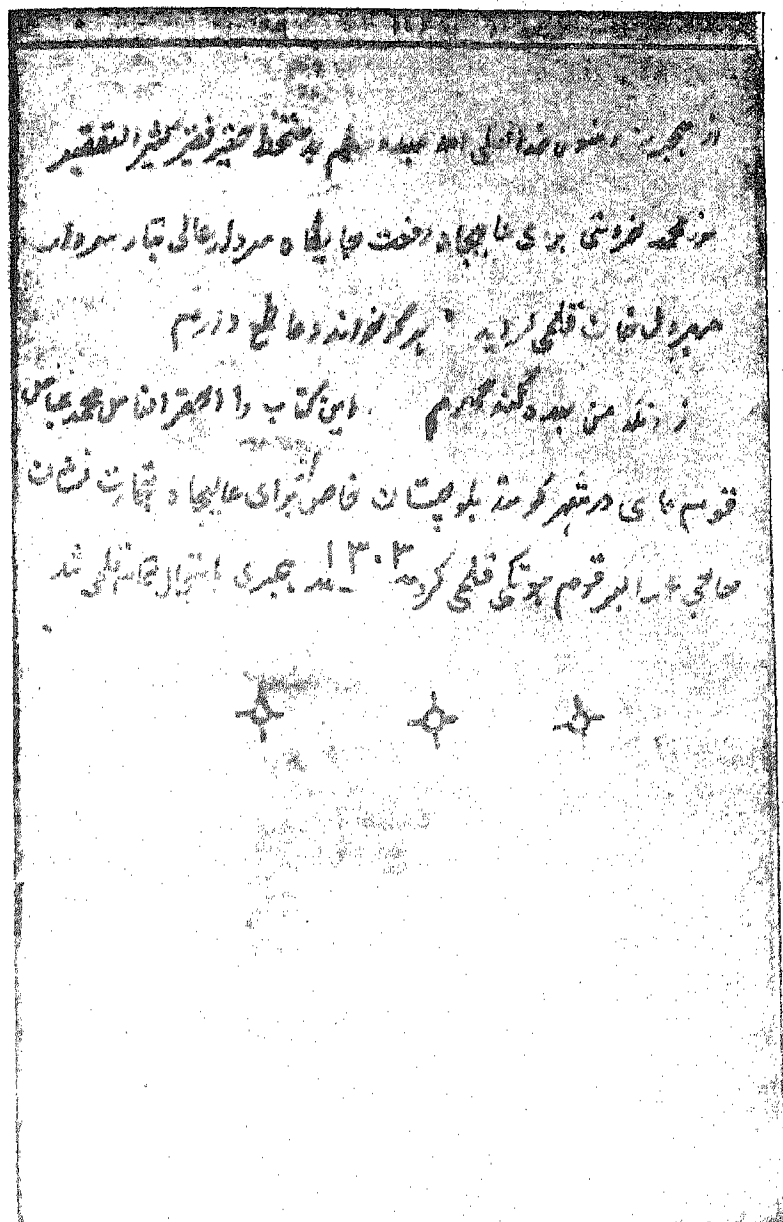 از هجرت رسول خدا صلی الله علیه وسلم بدستخط حقیر فقیر کثیر التقصیر
نور محمد خروتی برای عالیجاه رفعت جایگاه سردار عالی تبار سردار
مهردل خان قلمی گردید هرکه خواند دعا طمع دارم
زانکه من بنده گنه گارم این کتاب را احقر الناس محمد عباس
قوم کاسی در شهر کوته بلوچستان خاص برای عالیجاه تجارت نشان
حاجی محمد اکبر قوم هوتکی قلمی کرد سنه ۱۳۰۳ هجری قلمی شد